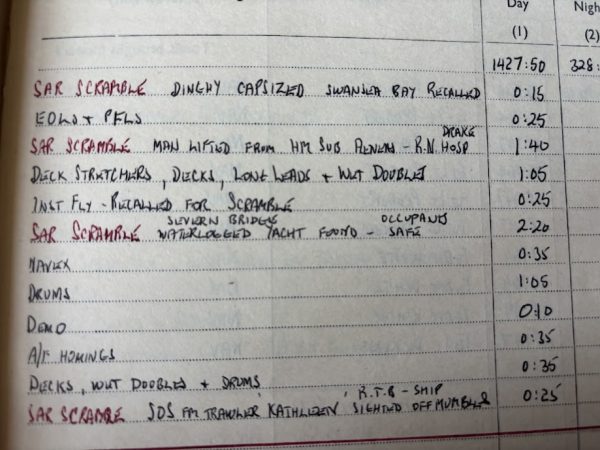 Day Nigh
(1) (2)
1427:50 328:
SAR SCRAMBLE DINGHY CAPSIZED SWANSEA BAY RECALLED 0:15
EOLS + PFLS 0:25
DRAKE
SAR SCRAMBLE MAN LIFTED FROM HM SUB - R.N. HOSP 1:40
DECK STRETCHERS, DECKS, LONG LEADS + WET DOUBLES 1:05
INST FLY - RECALLED FOR SCRAMBLE 0:25
SEVERN BRIDGE OCCUPANTS
SAR SCRAMBLE WATERLOGGED YACHT FOUND - SAFE 2:20
NAVEX 0:35
DRUMS 1:05
DEMO 0:10
A/F HOMINGS 0:35
DECKS, WET DOUBLES + DRUMS 0:35
R.T.B - SHIP
SAR SCRAMBLE SOS FM TRAWLER 'KATHLEEN' SIGHTED OFF MUMBLES 0:25